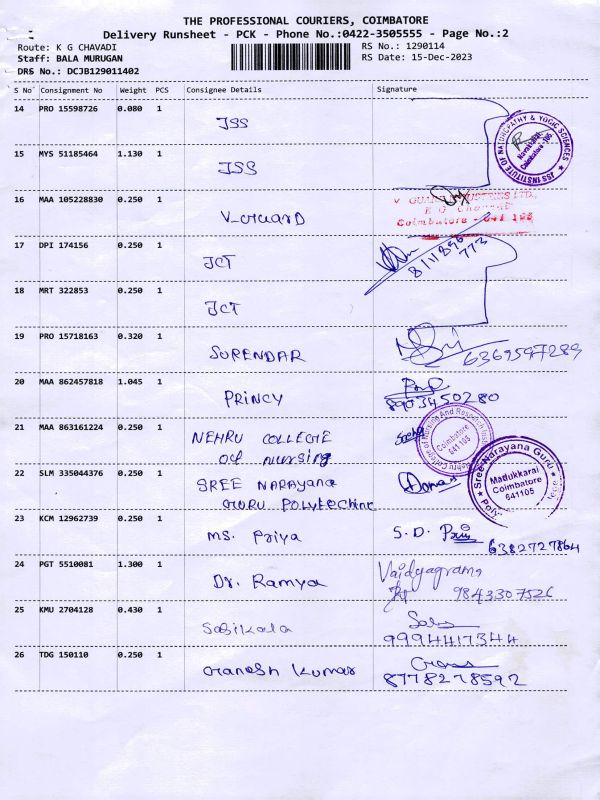 THE PROFESSIONAL COURIERS, COIMBATORE
Delivery Runsheet - PCK - Phone No.:0422-3505555 - Page No.:2
Route: K G CHAVADI
RS No.: 1290114
Staff: BALA MURUGAN
RS Date: 15-Dec-2023
DRS No.: DCJB129011402
S No Consignment No Weight PCS Consignee Details Signature
14 PRO 15598726 0.080 1
JSS
JSS INSTITUTE OF NATUROPATHY & YOGIC SCIENCES
Coimbatore
15 MYS 51185464 1.130 1
JSS
16 MAA 105228830 0.250 1
V-GUARD
Coimbatore - 641 105
17 DPI 174156 0.250 1
JCT
8111896
773
18 MRT 322853 0.250 1
JCT
19 PRO 15718163 0.320 1
SURENDAR
6369597289
20 MAA 862457818 1.045 1
PRINCY
8903450280
21 MAA 863161224 0.250 1
NEHRU COLLEGE
of nursing
Nehru College of Nursing And Research Inst
Coimbatore
641 105
22 SLM 335044376 0.250 1
SREE NARAYANA
GURU POLYTECHNIC
Sree Narayana Guru
Madukkarai
Coimbatore
641105
23 KCM 12962739 0.250 1
MS. Priya
S. D. Priy
6382727864
24 PGT 5510081 1.300 1
Dr. Ramya
Vaidyagrama
9843307526
25 KMU 2704128 0.430 1
Sasikala
9994417344
26 TDG 150110 0.250 1
Ganesh Kumar
8778278592